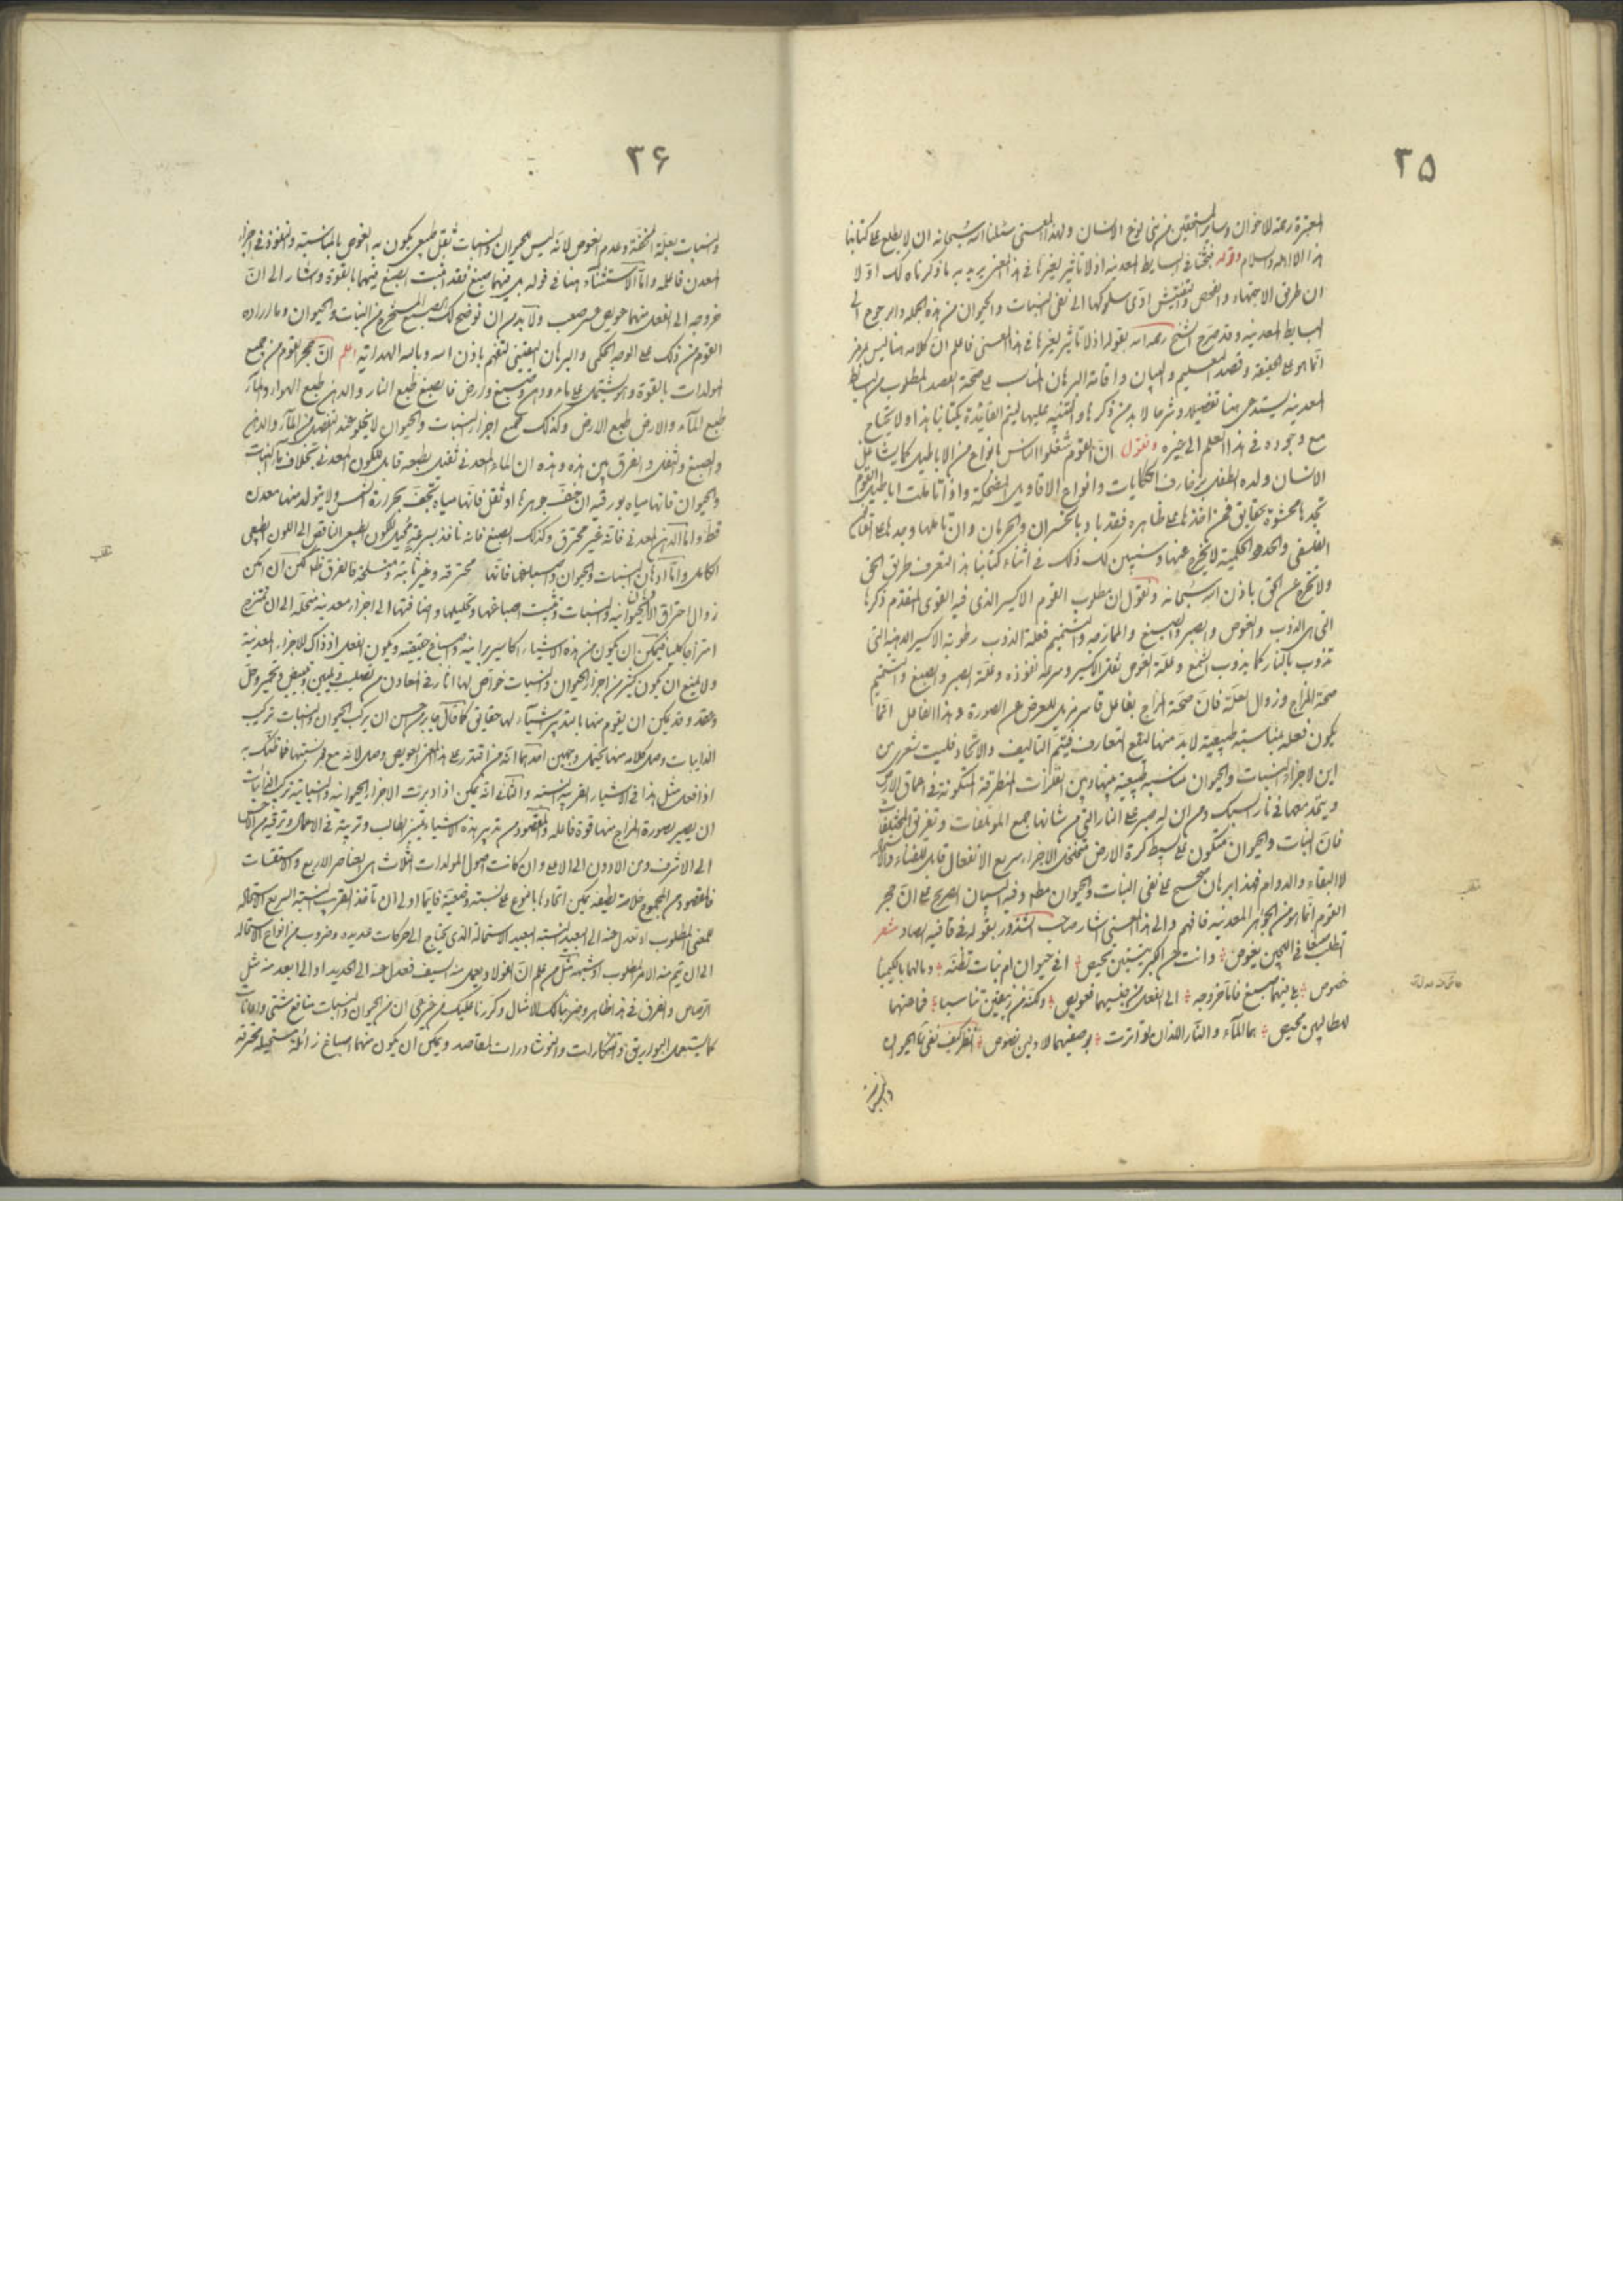 ٣٥
المعتبرة رحمة للاخوان وسائر المستحقين من بنى نوع الانسان ولهذا المعنى سئلنا الله سبحانه ان لا يطلع على كتابنا
هذا الا اهله والسلام وقوله فبحثنا فى البسايط المعدنية اذ لا تأثير لغيرها فى هذا المعنى يريد به ما ذكرناه لك اوّلا
ان طريق الاجتهاد والفحص والتفتيش ادّى سلوكها الى نفى النبات والحيوان من هذه الجملة والرجوع الى
البسايط المعدنية وقد صرّح الشيخ رحمه الله بقوله اذ لا تأثير لغيرها فى هذا المعنى فاعلم انّ كلامه هنا ليس برمز
انّما هو على الحقيقة وقصد التعليم والبيان واقامة البرهان المناسب على صحّة القصد المطلوب من البسايط
المعدنية يستدعى هنا تفصيلا وشرحا لا بد من ذكرها والتنبيه عليها ليتم الفائدة بكتابنا هذا ولا يحتاج
مع وجوده فى هذا العلم الى غيره ونقول انّ القوم شغلوا الناس بانواع من الاباطيل كما يشاغل
الانسان ولده الطفل بزخارف الحكايات وانواع الاقاويل المضحكة واذا تأملت اباطيل القوم
تجدها محشوّة بحقايق فمن اخذها على ظاهره فقد باد بالخسران والحرمان وان تأملها وجدها على القانون
الفلسفى والحدود الحكمية لا يخرج عنها وسنبين لك ذلك فى اثناء كتابنا هذا لتعرف طريق الحق
ولا تخرج عن الحق باذن الله سبحانه ونقول ان مطلوب القوم الاكسير الذى فيه القوى المتقدم ذكرها
التى هى الذوب والغوص والصبر والصبغ والممازجة والتتميم فعلّة الذوب رطوبة الاكسير الدهنية التى
تذوب بالنار كما يذوب الشمع وعلّة الغوص ثقل الاكسير وسرعة نفوذه وعلّة الصبر والصبغ والتتميم
صحّة المزاج وزوال العلّة فانّ صحّة المزاج بفاعل قاسر مزيل للعرض عن الصورة وهذا الفاعل انّما
يكون فعله بمناسبة طبيعية لا بدّ منها ليقع التعارف فيتم التأليف والاتحاد فليت شعرى من
اين لاجزاء النبات والحيوان مناسبة طبيعية بينها وبين الفلزات المنطرقة المتكونة فى اعماق الارض
ويتحد معها فى نار السبك ومن اين له صبر على النار التى من شانها جمع المؤتلفات وتفريق المختلفات
فانّ النبات والحيوان متكون على بسيط كرة الارض متخلخل الاجزاء سريع الانفعال قابل للفناء والاستحالة
لا البقاء والدوام فهذا برهان صحيح على نفى النبات والحيوان مطلقا وفيه البيان الصريح على انّ حجر
القوم انّما هو من الجواهر المعدنية فافهم والى هذا المعنى اشار صاحب الشذور بقوله فى قافية الصاد شعر
اتطلب صبغا فى اللجين يغوص وانت عن الكبريتتين تحيص افى حيوان ام نبات تظنّه وما لهما بالكيميا
خصوص بلى فيهما صبغ فامّا خروجه الى الفعل من جنسيهما فعويص ولكنه من زيبقين تناسبا فما عنهما
للطالبين محيص هما المآء والنّار اللذان تواترت بوصفيهما للاولين نصوص انظر كيف نفى الحيوان
والنبات
تعقيب
٣٦
والنبات بعلّة الخفّة وعدم الغوص لانّه ليس للحيوان والنبات ثقل طبيعى يكون به الغوص بالمناسبة والنفوذ فى اجزاء
المعدن فاعله وامّا الاستثناء هنا فى قوله بلى فيهما صبغ فقد اثبت الصبغ فيهما بالقوة واشار الى انّ
خروجه الى الفعل منهما عويص عسر صعب ولا بدّ من ان نوضح لك الصبغ المستخرج من النبات والحيوان وما اراده
القوم من ذلك على الوجه الحكمى والبرهان اليقينى لتفهم باذن الله وبالله الهداية اعلم انّ حجر القوم من جميع
المولدات بالقوة وهو يشتمل على ماء ودهن وصبغ وارض فالصبغ طبع النار والدهن طبع الهواء والمآء
طبع المآء والارض طبع الارض وكذلك جميع اجزاء النبات والحيوان لا يخلو عند التفصيل من المآء والدهن
والصبغ والثفل والفرق بين هذه وهذه ان الماء المعدنى ثقيل بطبعه قابل للتكون المعدنى بخلاف ماء النبات
والحيوان فانها مياه بورقية ان خفّ جوهرها او ثقل فانّها مياه تجفّ بحرارة الشمس ولا يتولد منها معدن
قطّ وامّا الدهن المعدنى فانّه غير محترق وكذلك الصبغ فانه نافذ بسرعة محيل للّون الطبيعى الناقص الى اللون الطبيعى
الكامل وامّا ادهان النبات والحيوان واصباغها فانّها محترقة وغير ثابتة ومنسلخة فالفرق ظاهر لكن ان امكن
زوال احتراق الادهان الحيوانية والنبات وتثبت اصباغها وتحليلها واضافتها الى اجزاء معدنية منحلّة الى ان تمتزج
امتزاجا كليا فيمكن ان يكون من هذه الاشياء اكاسير برانية واصباغ حقيقية ويكون الفعل اذ ذاك للاجزاء المعدنية
ولا يمنع ان يكون كثير من اجزاء الحيوان والنبات خواص لها اثار فى المعادن من تصليب وتليين وتبييض وتحمير وحلّ
وعقد وقد يمكن ان يقوم منها بالتدبير اشياء لها حقايق كما قال جابر من احسن ان يركب الحيوان والنبات تركيب
الذايبات وصل كلامه منها يحتمل وجهين احدهما انّه من اقتدر على هذا المعنى العويص وصل لانّه مع قرب نسبتها فما ظنّك به
اذا فعل مثل هذا فى الاشياء القريبة النسبة والثانى انّه يمكن اذا دبرت الاجزاء الحيوانية والنباتية تركيب الذائبات
ان يصير بصورة المزاج منها قوة فاعلة والمقصود من تدبير هذه الاشياء تمييز الطالب وتربيته فى الاعمال وترقيه من الاخس
الى الاشرف ومن الادون الى الاعلى وان كانت اصول المولدات الثلاث هى العناصر الاربع والاستقسات
فالمقصود من المجموع خلاصة لطيفة يمكن اتحادها بالنوع على نسبة وضعية فايّما اولى ان تأخذ القريب النسبة السريع الاستحالة
للمعنى المطلوب او تعدل عنه الى البعيد النسبة البعيد الاستحالة الذى يحتاج الى حركات عديدة وضروب من انواع الاستحالة
الى ان يتم منه الامر المطلوب او شبهه مثل من علم انّ الفولاذ يعمل منه السيف فعدل عنه الى الحديد او الى ابعد منه مثل
الرصاص والفرق فى هذا ظاهر وضربنا لك الامثال وكررنا عليك من غرضى ان من الحيوان والنبات منافع شتى واعانات
كما يستعمل البوارق والتنكارات والنوشادرات للمقاصد ويمكن ان يكون منهما اصباغ زائلة مستحيلة محترقة